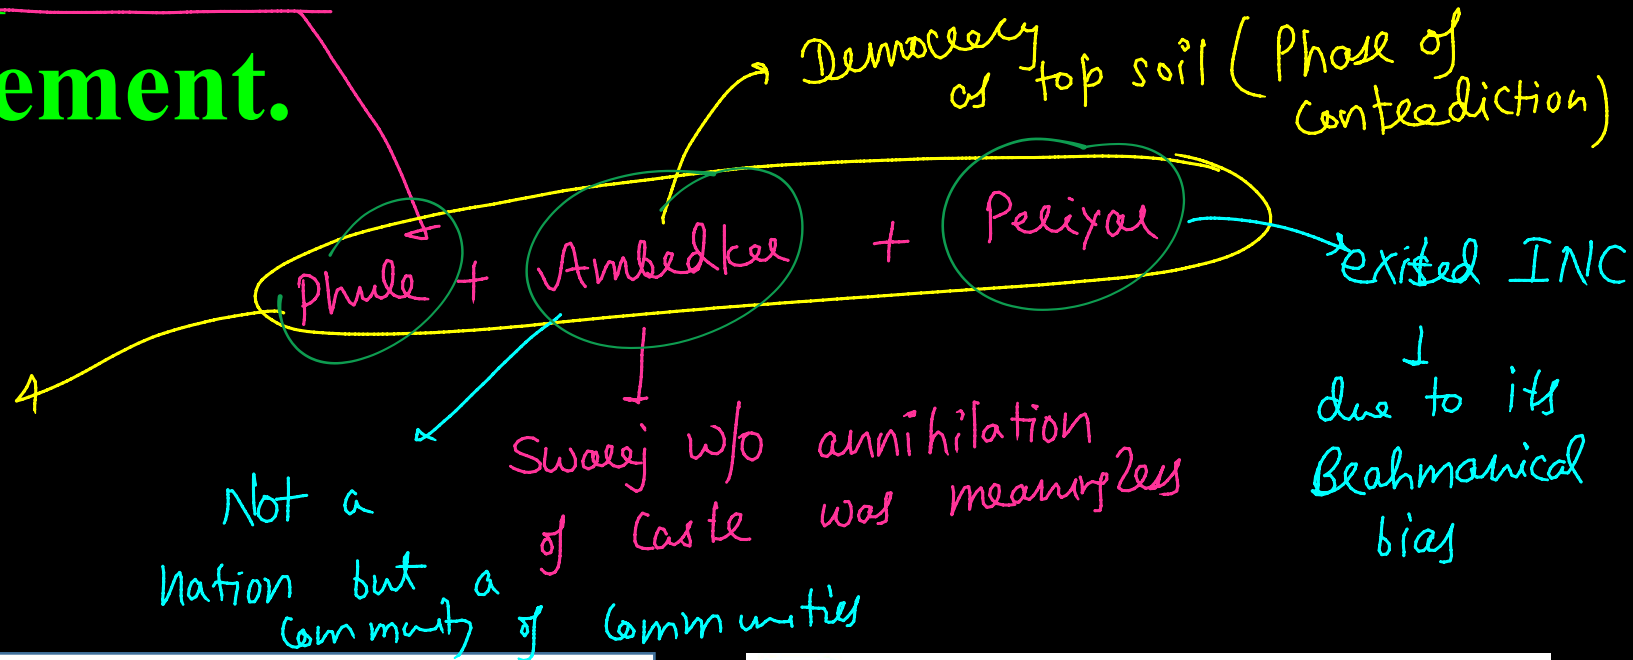 ement.
Democracy
as top soil (Phase of
contradiction)
Phule + Ambedkar + Periyar
exited INC
due to its
Brahmanical
bias
Swaraj w/o annihilation
of Caste was meaningless
Not a
nation but a
community of communities